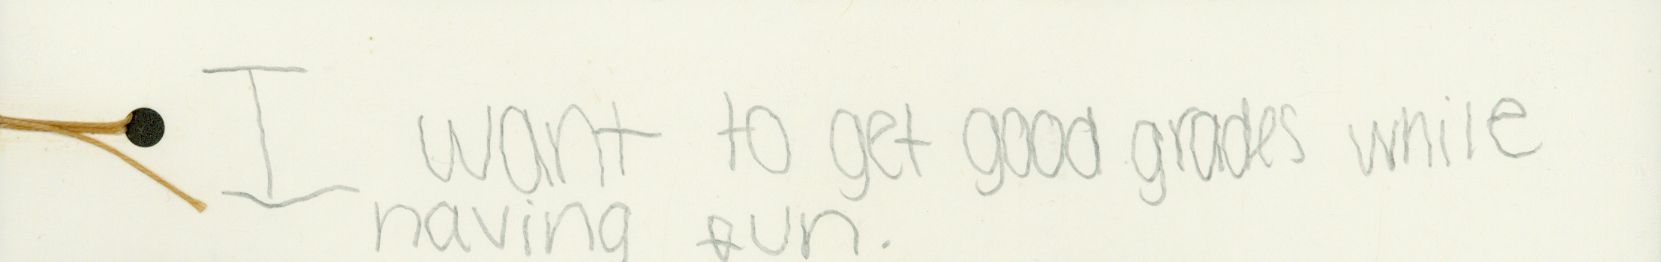 I want to get good grades while
having fun.